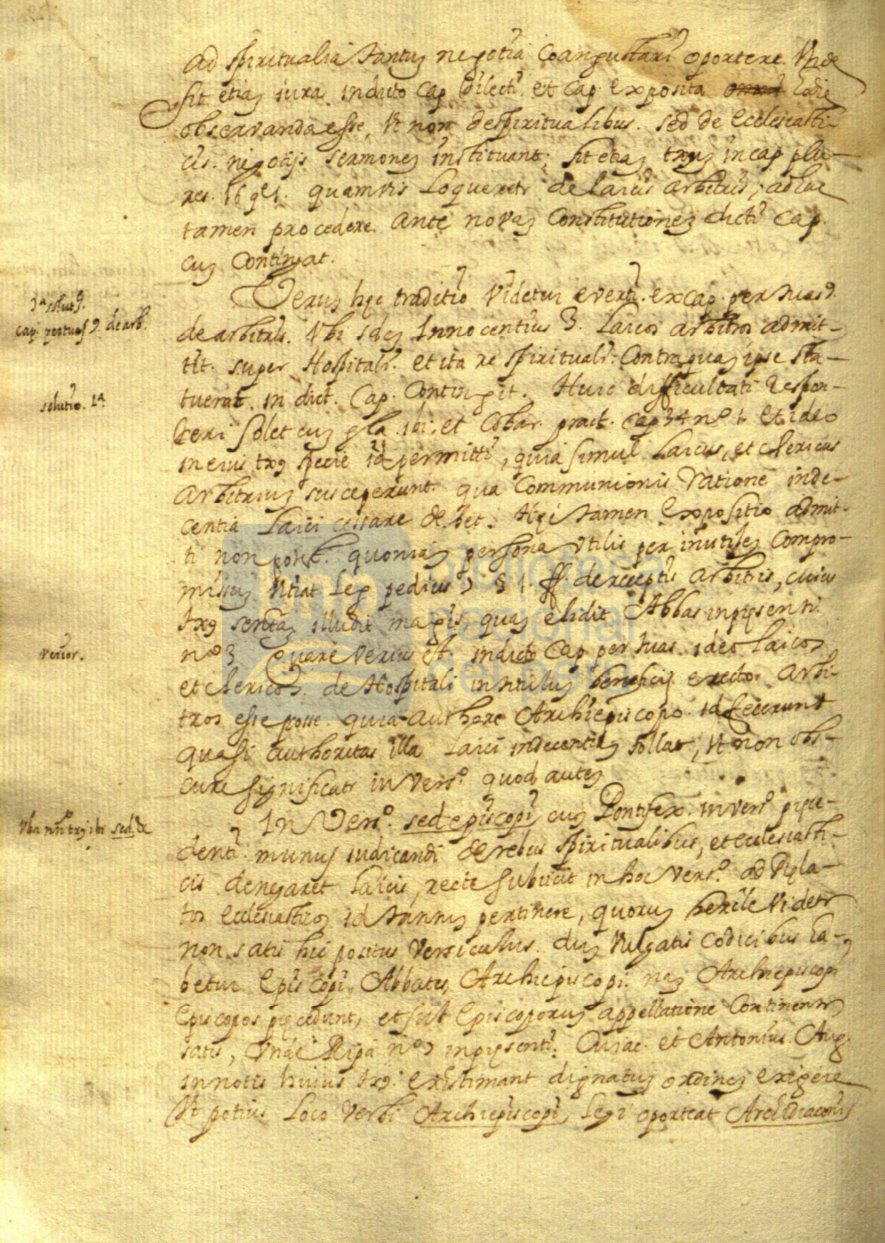 ad spiritualia tantum negotia coangustari oportere. Unde
sit etiam iura in dicto cap. dilecti et cap. exposita hodie
observanda esse, ut non de spiritualibus. sed de Ecclesiasti-
cis. negotijs sermonem instituant; sit etiam in cap. plu-
quamvis loqueretr de laicis arbitris, adhuc
tamen procedere. Ante novam Constitutionem dicti Cap.
cum Contingat.
Verum hec traditio videtur everti. ex cap. per tuas 9.
de arbitris. Ubi idem Innocentius 3. Laicos arbitros admit-
tit. super Hospitali. et ita re spirituali. Contra quam ipse sta-
tuerat. in dict. Cap. Contingit. Huic difficultati Respon-
deri solet cum gla. ibi. et Cobar. pract. cap. 34 nº 1. et ideo
in eius specie id permitti, quia simul Laicus, et clericus
Arbitrium susceperunt. qua Communionis ratione inde-
centia Laici cessare debet. tamen Expositio admit-
ti non potest. quoniam persona utilis per inutilem Compro-
missum Leg. pedius 7 § 1. ff. de receptis arbitris, cuius
illudit magis, quam elidit Abbas in presenti.
nº 3 Quare verius est. in dict. Cap. per tuas. ideo laicos
et clericos de Hospitali in titulum beneficij erecto Arbi-
tros esse posse quia Authore Archiepiscopo id fecerunt
quasi authoritas illa Laici indecentiam tollat, ut non obs-
cure significatr in vers.º quod autem
In Vers.º sed episcopi cum Pontifex. in vers.º prece-
denti munus iudicandi de rebus spiritualibus, et ecclesiasti-
cis denegaret Laicis, recte subiicit in hoc vers.º ad Prela-
tos ecclesiasticos id tantum pertinere, quorum videtr
non satis hic positus versiculus. dum vulgatis Codicibus ha-
betur Episcopi, Abbates, Archiepiscopi. nam Archiepiscopi
Episcopos precedunt, et sub Episcoporum appellatione Continentur
satis, Unde Ripa nº 7 in presenti. Cuiac. et Antonius Aug.
in notis huius existimant dignatum ordinem exigere
Ut potius Loco verbi Archiepiscopi, Legi oporteat Archidiaconi
cap. per tuas 9. de arb.
solutio. 1ª.
verior.
sed. de